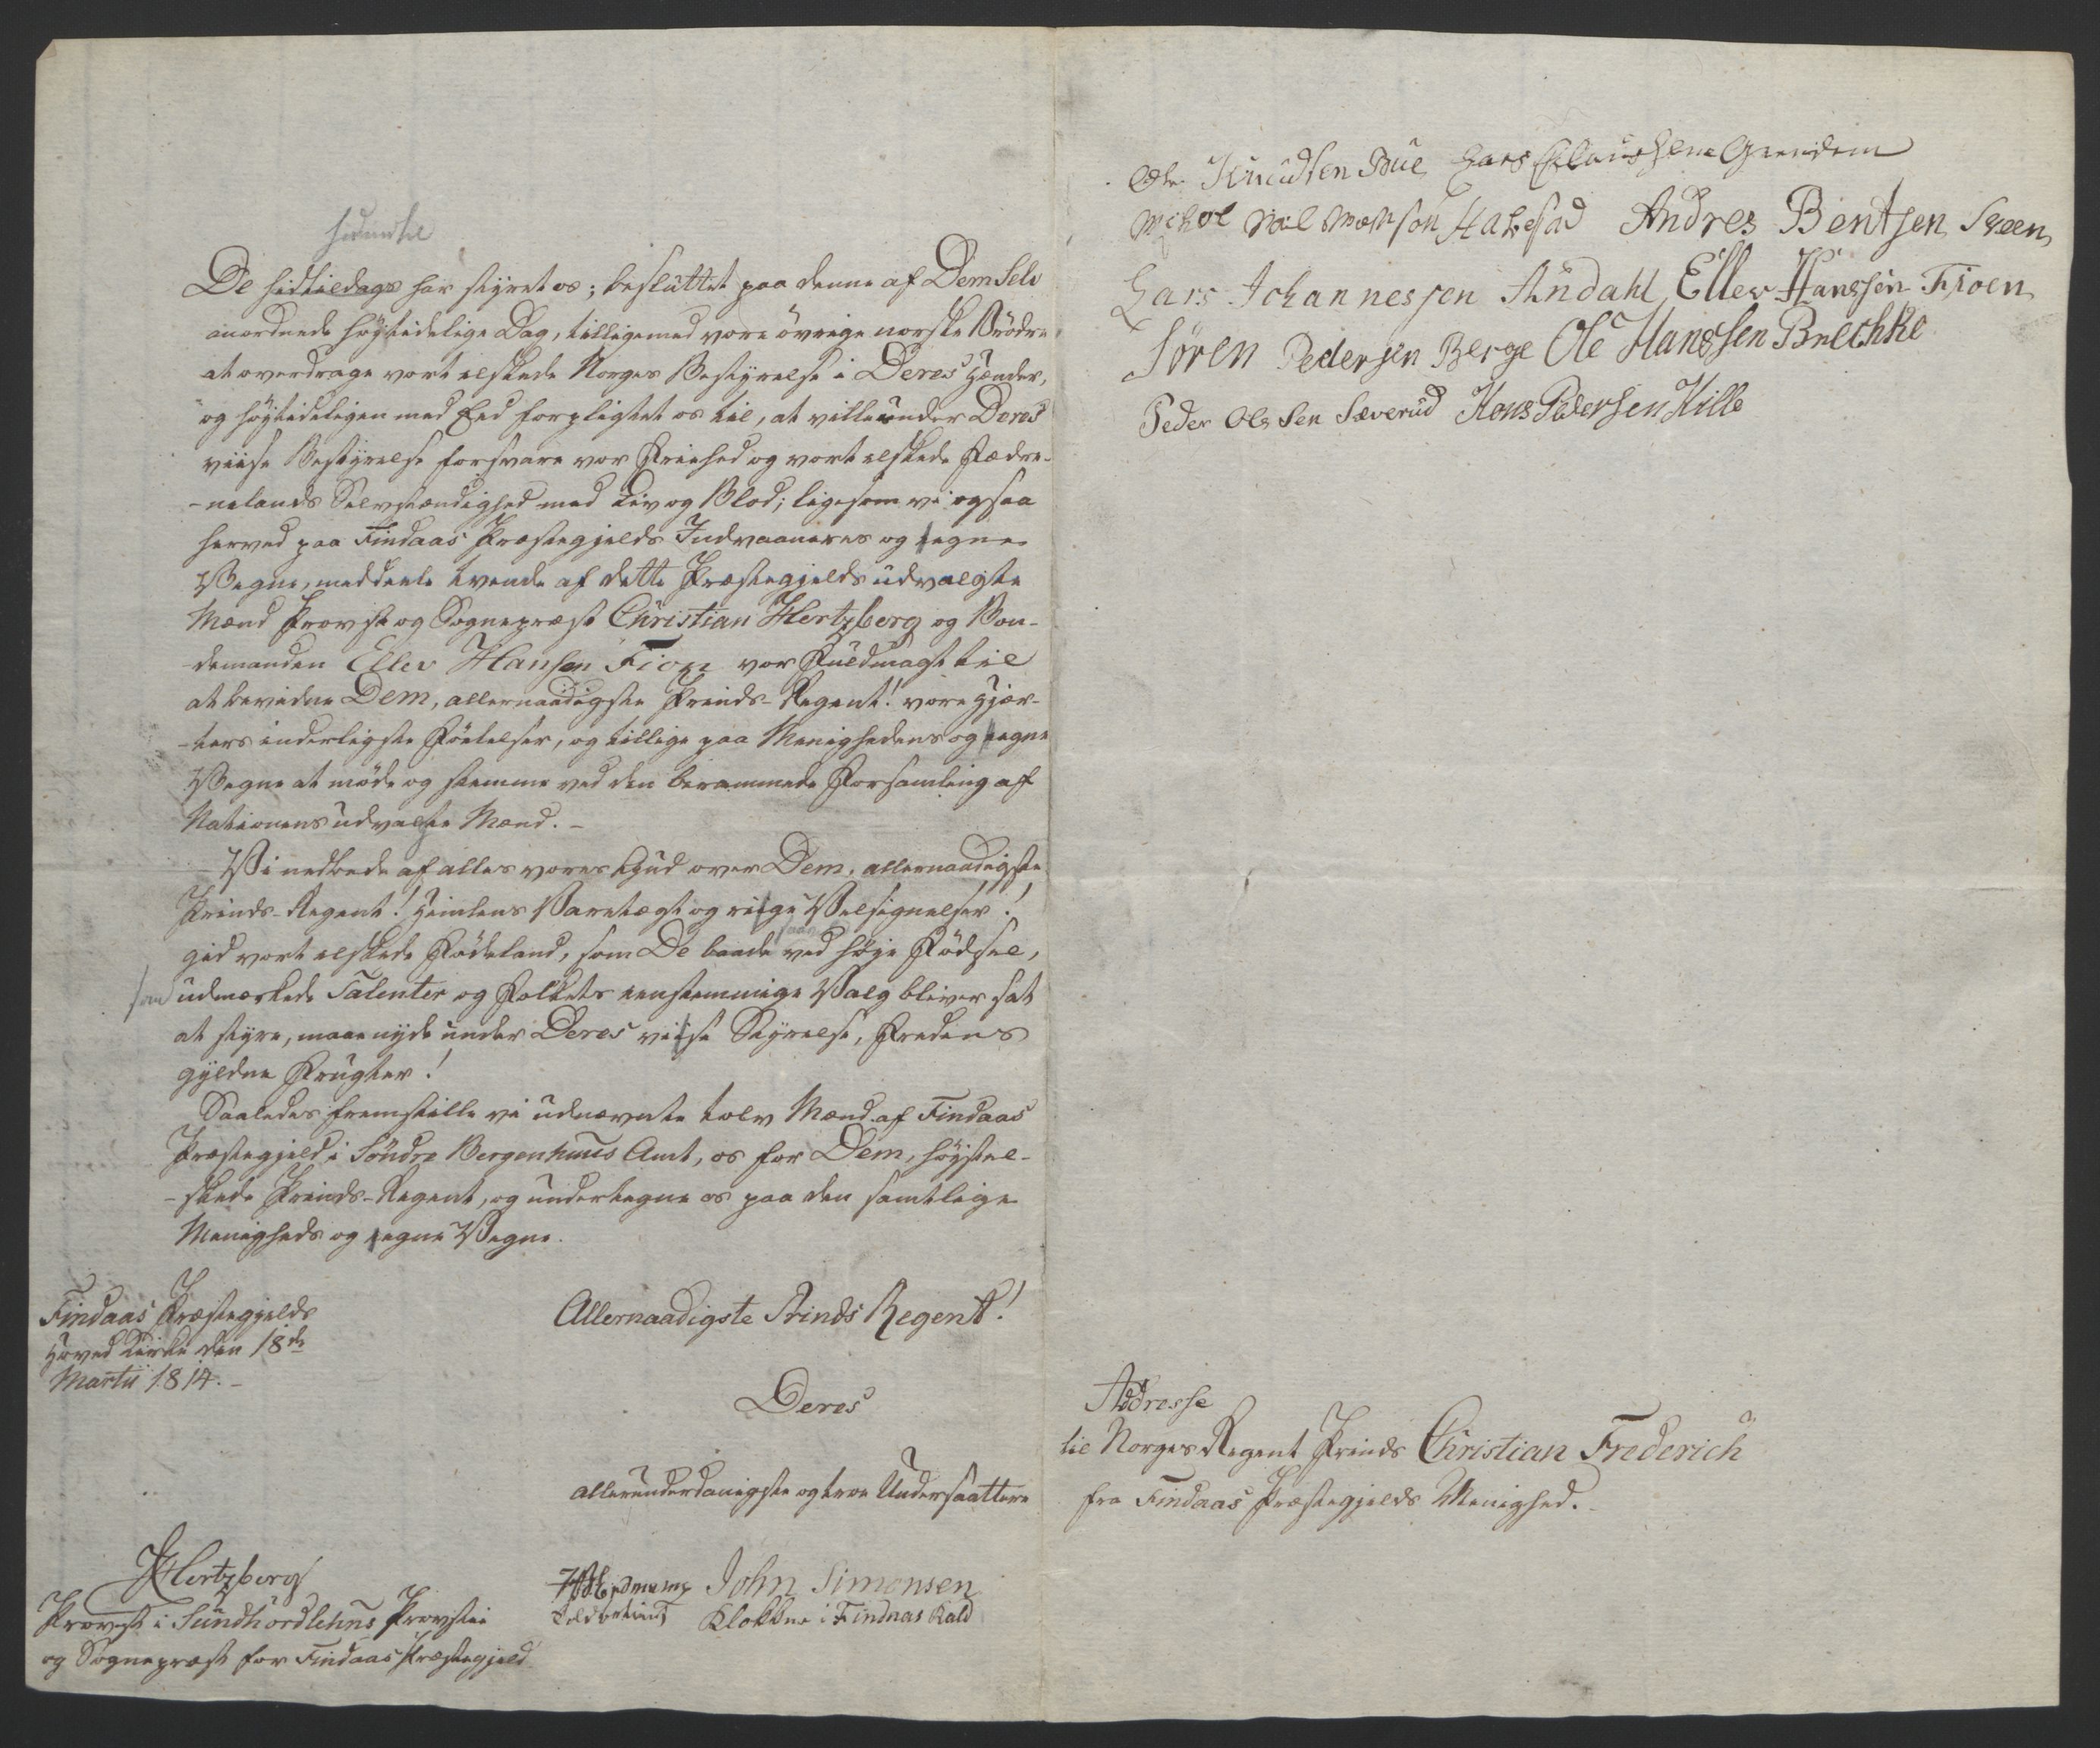 hidindtil
De hidtiedags har styret os; besluttet paa denne af Dem Selv
anordnede höytidelige Dag, tilligemed vore övrige norske Brödre
at overdrage vort elskede Norges Bestyrelse i Deres Hænder,
og höytideligen med Eed forpligtet os til, at ville under Deres
viise Bestyrelse forsvare vor Friehed og vort elskede Fædre-
-nelands Selvstændighed med Liv og Blod; ligesom vi ogsaa
herved paa Findaas Præstegjelds Indvaaneres og egne
Vegne, meddeele tvende af dette Præstegjelds udvalgte
Mænd Provst og Sognepræst Christian Hertzberg og Bon-
demanden Ellev Hansen Fion vor Fuldmagt til
at bevidne Dem, allernaadigste Prinds-Regent! vore Hjær-
-ters inderligste Fölelser, og tillige paa Menighedens og egne
Vegne at möde og stemme ved den berammede Forsamling af
Nationens udvalgte Mænd. -
Vi nedbede af alles vores Gud over Dem, allernaadigste
Prinds-Regent! Himlens Varetægt og riige Velsignelser!
gid vort elskede Födeland, som De baade ved höje Födsel,
som udmærkede Talenter og Folkets eenstemmige Valg bliver sat
at styre, maae nyde under Deres viise Styrelse, Fredens
gyldne Frugter!
Saaledes fremstille vi udnævnte tolv Mænd af Findaas
Præstegjeld i Söndre Bergenhuus Amt, os for Dem, höystel-
-skede Prinds-Regent, og undertegne os paa den samtlige
Menigheds og egne Vegne.
Findaas Præstegjelds
Hoved Kirke den 18de
Martii 1814. -
Allernaadigste Prinds Regent!
Deres
allerunderdanigste og troe Undersaattere
Hertzberg
Provst i Sundhordlehns Provstie
og Sognepræst for Findaas Præstegjeld
John Simonsen
Klokker i Findaas Kald
Ole Knudsen Bue Lars Clausen Grindem
Michel Andres Bentsen Steen
Lars Johannessen Andahl Ellev Hanssen Fioen
Sören Pedersen Berge Ole Hanssen Brechke
Peder Olssen Sæverud Hons Pedersen Hille
Addresse
til Norges Regent Prinds Christian Frederich
fra Findaas Præstegjelds Menighed.